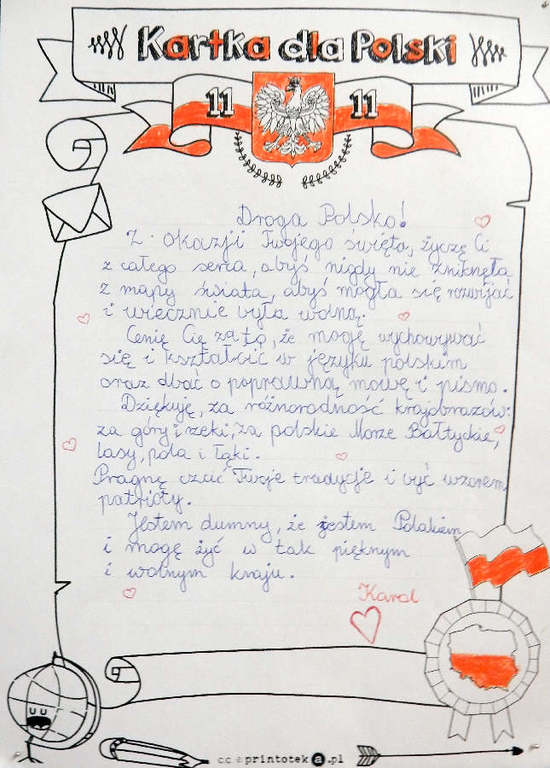 Kartka dla Polski
11 11
Droga Polsko!
Z okazji Twojego święta, życzę Ci
z całego serca, abyś nigdy nie zniknęła
z mapy świata, abyś mogła się rozwijać
i wiecznie była wolną.
Cenię Cię za to, że mogę wychowywać
się i kształcić w języku polskim
oraz dbać o poprawną mowę i pismo.
Dziękuję, za różnorodność krajobrazów:
za góry i rzeki, za polskie Morze Bałtyckie,
lasy, pola i łąki.
Pragnę czcić Twoje tradycje i być wzorem
patrioty.
Jestem dumny, że jestem Polakiem
i mogę żyć w tak pięknym
i wolnym kraju.
Karol
c.c. printoteka.pl